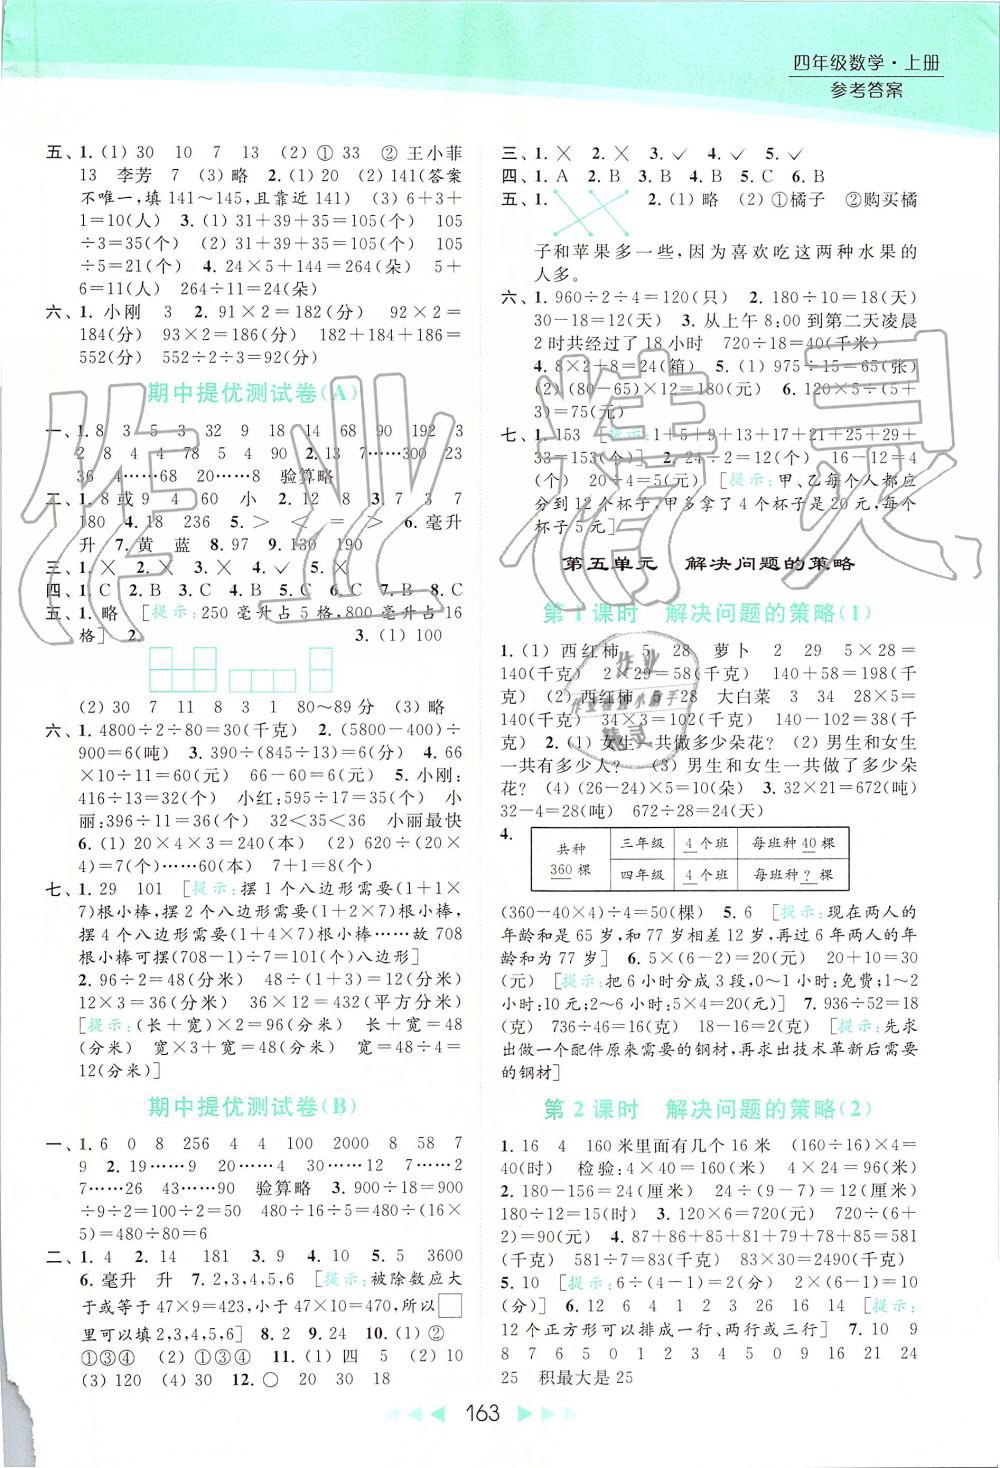 四年级数学·上册
参考答案
五、1. (1) 30 10 7 13 (2) ① 33 ② 王小菲
13 李芳 7 (3) 略 2. (1) 20 (2) 141(答案
不唯一,填 141～145,且靠近 141) (3) 6+3+
1=10(人) 3. (1) 31+39+35=105(个) 105
÷3=35(个) (2) 31+43+31=105(个) 105
÷5=21(个) 4. 24×5+144=264(朵) 5+
6=11(人) 264÷11=24(朵)
六、1. 小刚 3 2. 91×2=182(分) 92×2=
184(分) 93×2=186(分) 182+184+186=
552(分) 552÷2÷3=92(分)
期中提优测试卷(A)
一、1. 8 3 5 3 32 9 18 14 68 90 192 3
2 8 4 4 78 5 4 90 2. 13 7……300 23
36 4……68 20……8 验算略
二、1. 8或9 4 60 小 2. 12 8 3. 7 3 7
180 4. 18 236 5. > < = > 6. 毫升
升 7. 黄 蓝 8. 97 9. 130 190
三、1. × 2. × 3. × 4. × 5. ×
四、1. C 2. B 3. B 4. A 5. C 6. C 7. B 8. C
五、1. 略 [提示:250 毫升占 5 格,800 毫升占 16
格] 2. 3. (1) 100
(2) 30 7 11 8 3 1 80～89分 (3) 略
六、1. 4800÷2÷80=30(千克) 2. (5800-400)÷
900=6(吨) 3. 390÷(845÷13)=6(分) 4. 66
×10÷11=60(元) 66-60=6(元) 5. 小刚:
416÷13=32(个) 小红:595÷17=35(个) 小
丽:396÷11=36(个) 32<35<36 小丽最快
6. (1) 20×4×3=240(本) (2) 620÷(20×
4)=7(个)……60(本) 7+1=8(个)
七、1. 29 101 [提示:摆 1 个八边形需要(1+1×
7)根小棒,摆 2 个八边形需要(1+2×7)根小棒,
摆 4 个八边形需要(1+4×7)根小棒……故 708
根小棒可摆(708-1)÷7=101(个)八边形]
2. 96÷2=48(分米) 48÷(1+3)=12(分米)
12×3=36(分米) 36×12=432(平方分米)
[提示:(长+宽)×2=96(分米) 长+宽=48
(分米) 宽×3+宽=48(分米) 宽=48÷4=
12(分米)]
期中提优测试卷(B)
一、1. 6 0 8 256 4 4 100 2000 8 58 7
9 2. 19……9 20……4 30……12 7……2
7……26 43……90 验算略 3. 900÷18=900
÷9÷2=100÷2=50 480÷16×5=480÷(16×
5)=480÷80=6
二、1. 4 2. 14 181 3. 9 4. 10 5. 5 3600
6. 毫升 升 7. 2,3,4,5,6 [提示:被除数应大
于或等于 47×9=423,小于 47×10=470,所以□
里可以填 2,3,4,5,6] 8. 2 9. 24 10. (1) ②
①③④ (2) ①③④ 11. (1) 四 5 (2) 10
(3) 120 (4) 30 12. ○ 20 30 18
三、1. × 2. × 3. ✓ 4. ✓ 5. ✓
四、1. A 2. B 3. B 4. B 5. C 6. B
五、1. 2. (1) 略 (2) ①橘子 ②购买橘
子和苹果多一些,因为喜欢吃这两种水果的
人多。
六、1. 960÷2÷4=120(只) 2. 180÷10=18(天)
30-18=12(天) 3. 从上午 8:00 到第二天凌晨
2 时共经过了 18 小时 720÷18=40(千米)
4. 8×2+8=24(箱) 5. (1) 975÷15=65(张)
(2) (80-65)×12=180(元) 6. 120×5÷(5+
3)=75(元)
七、1. 153 [提示:1+5+9+13+17+21+25+29+
33=153(个)] 2. 24÷2=12(个) 16-12=4
(个) 20÷4=5(元) [提示:甲、乙每个人都应
分到 12 个杯子,甲多拿了 4 个杯子是 20 元,每个
杯子 5 元]
第五单元 解决问题的策略
第 1 课时 解决问题的策略(1)
1. (1) 西红柿 5 28 萝卜 2 29 5×28=
140(千克) 2×29=58(千克) 140+58=198(千
克) (2) 西红柿 5 28 大白菜 3 34 28×5=
140(千克) 34×3=102(千克) 140-102=38(千
克) 2. (1) 女生一共做多少朵花? (2) 男生和女生
一共有多少人? (3) 男生和女生一共做了多少朵
花? (4) (26-24)×5=10(朵) 3. 32×21=672(吨)
32-4=28(吨) 672÷28=24(天)
4.
共种 360 棵 三年级 4 个班 每班种 40 棵
四年级 4 个班 每班种 ? 棵
(360-40×4)÷4=50(棵) 5. 6 [提示:现在两人的
年龄和是 65 岁,和 77 岁相差 12 岁,再过 6 年两人的年
龄和为 77 岁] 6. 5×(6-2)=20(元) 20+10=30
(元) [提示:把 6 小时分成 3 段,0～1 小时:免费;1～2
小时:10 元;2～6 小时:5×4=20(元)] 7. 936÷52=18
(克) 736÷46=16(克) 18-16=2(克) [提示:先求
出做一个配件原来需要的钢材,再求出技术革新后需要
的钢材]
第 2 课时 解决问题的策略(2)
1. 16 4 160 米里面有几个 16 米 (160÷16)×4=
40(时) 检验:4×40=160(米) 4×24=96(米)
2. 180-156=24(厘米) 24÷(9-7)=12(厘米)
180÷12=15(时) 3. 120×6=720(元) 720÷(6+
2)=90(元) 4. 87+86+85+81+79+79+84=581
(千克) 581÷7=83(千克) 83×30=2490(千克)
5. 10 [提示:6÷(4-1)=2(分) 2×(6-1)=10
(分)] 6. 12 6 4 1 2 3 26 16 14 [提示:
12 个正方形可以排成一行、两行或三行] 7. 10 9
8 7 6 5 0 1 2 3 4 5 9 16 21 24
25 积最大是 25
163
作业精灵